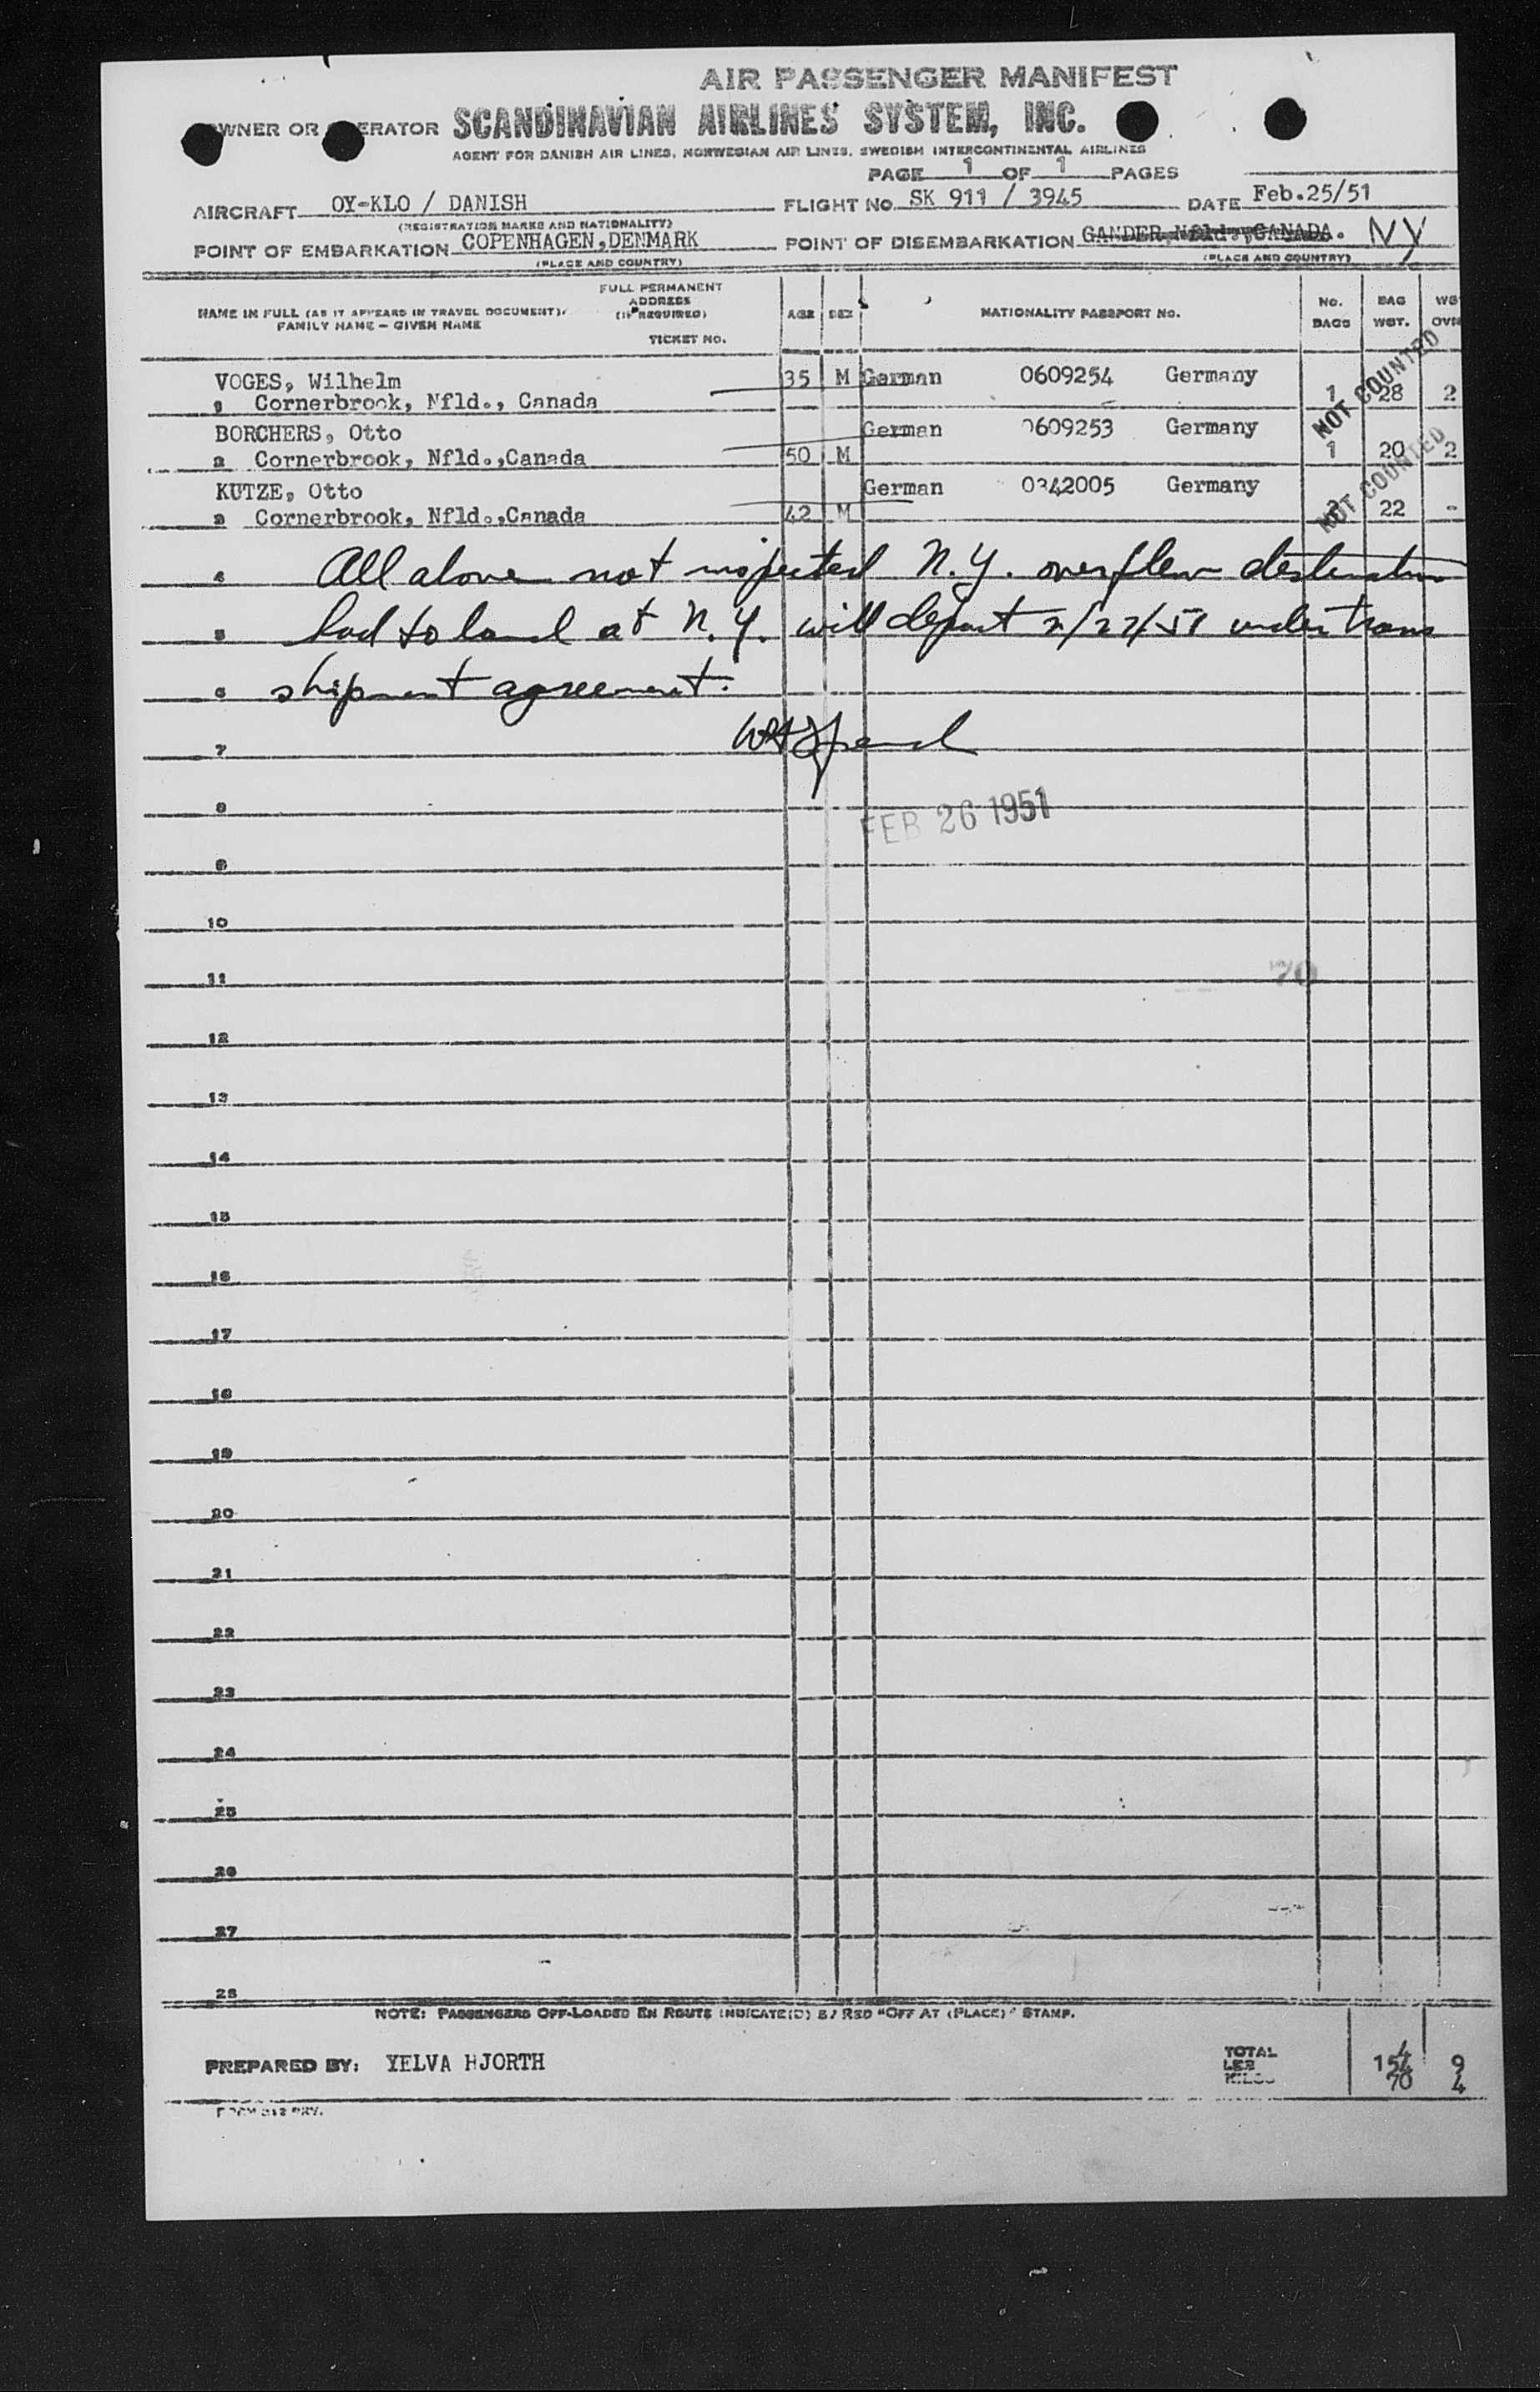 AIR PASSENGER MANIFEST
OWNER OR OPERATOR SCANDINAVIAN AIRLINES SYSTEM, INC.
AGENT FOR DANISH AIR LINES, NORWEGIAN AIR LINES, SWEDISH INTERCONTINENTAL AIRLINES
PAGE 1 OF 1 PAGES
AIRCRAFT OY-KLO / DANISH FLIGHT NO SK 911 / 3945 DATE Feb.25/51
(REGISTRATION MARKS AND NATIONALITY)
POINT OF EMBARKATION COPENHAGEN,DENMARK POINT OF DISEMBARKATION GANDER,Nfld.,CANADA. NY
(PLACE AND COUNTRY) (PLACE AND COUNTRY)
NAME IN FULL (AS IT APPEARS IN TRAVEL DOCUMENT) FAMILY NAME – GIVEN NAME
FULL PERMANENT ADDRESS (IF REQUIRED)
TICKET NO.
AGE SEX NATIONALITY PASSPORT NO. NO. BAGS BAG WGT.
VOGES, Wilhelm 35 M German 0609254 Germany
1 Cornerbrook, Nfld., Canada 1 28 2
NOT COUNTED
BORCHERS, Otto German 0609253 Germany
2 Cornerbrook, Nfld.,Canada 50 M 1 20 2
NOT COUNTED
KUTZE, Otto German 0342005 Germany
3 Cornerbrook, Nfld.,Canada 42 M 2 22 -
4 All above not inspected N.Y. overflew destination
5 had to land at N.Y. will depart 2/27/51 under trans
6 shipment agreement.
7
8
FEB 26 1951
9
10
11
70
12
13
14
15
16
17
18
19
20
21
22
23
24
25
26
27
28
NOTE: PASSENGERS OFF-LOADED EN ROUTE INDICATE(D) BY RED "OFF AT (PLACE)" STAMP.
PREPARED BY: YELVA HJORTH
TOTAL 4
LBS 154 9
KILOS 70 4